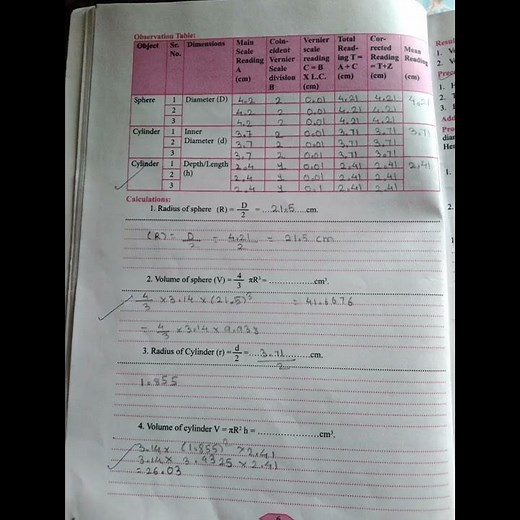 Observation Table:
Object Sr. No. Dimensions Main Scale Reading A (cm) Coin-cident Vernier Scale division B Vernier scale reading C = B X L.C. (cm) Total Read-ing T = A + C (cm) Cor-rected Reading = T+Z (cm) Mean Reading (cm)
Sphere 1 Diameter (D) 4.2 2 0.01 4.21 4.21 4.21
2 4.2 2 0.01 4.21 4.21
3 4.2 2 0.01 4.21 4.21
Cylinder 1 Inner 3.7 2 0.01 3.71 3.71 3.71
2 Diameter (d) 3.7 2 0.01 3.71 3.71
3 3.7 2 0.01 3.71 3.71
Cylinder 1 Depth/Length 2.4 4 0.01 2.41 2.41 2.41
2 (h) 2.4 4 0.01 2.41 2.41
3 2.4 4 0.1 2.41 2.41
Calculations:
1. Radius of sphere (R) = D/2 = ....21.5....cm.
(R) = D/2 = 4.21/2 = 21.5 cm
2. Volume of sphere (V) = 4/3 πR³ = ..................cm³.
4/3 × 3.14 × (21.5)³ = 41.6076
= 4/3 × 3.14 × 9.938
3. Radius of Cylinder (r) = d/2 = ....3.71/2....cm.
1.855
4. Volume of cylinder V = πR² h = ......................cm³.
3.14 × (1.855)² × 2.41
3.14 × 3.4325 × 2.41
= 26.03
6
Resul
1. V
2. V
Preca
1. H
2.
3. I
Add
Pro
dian
Hen
1.
2.